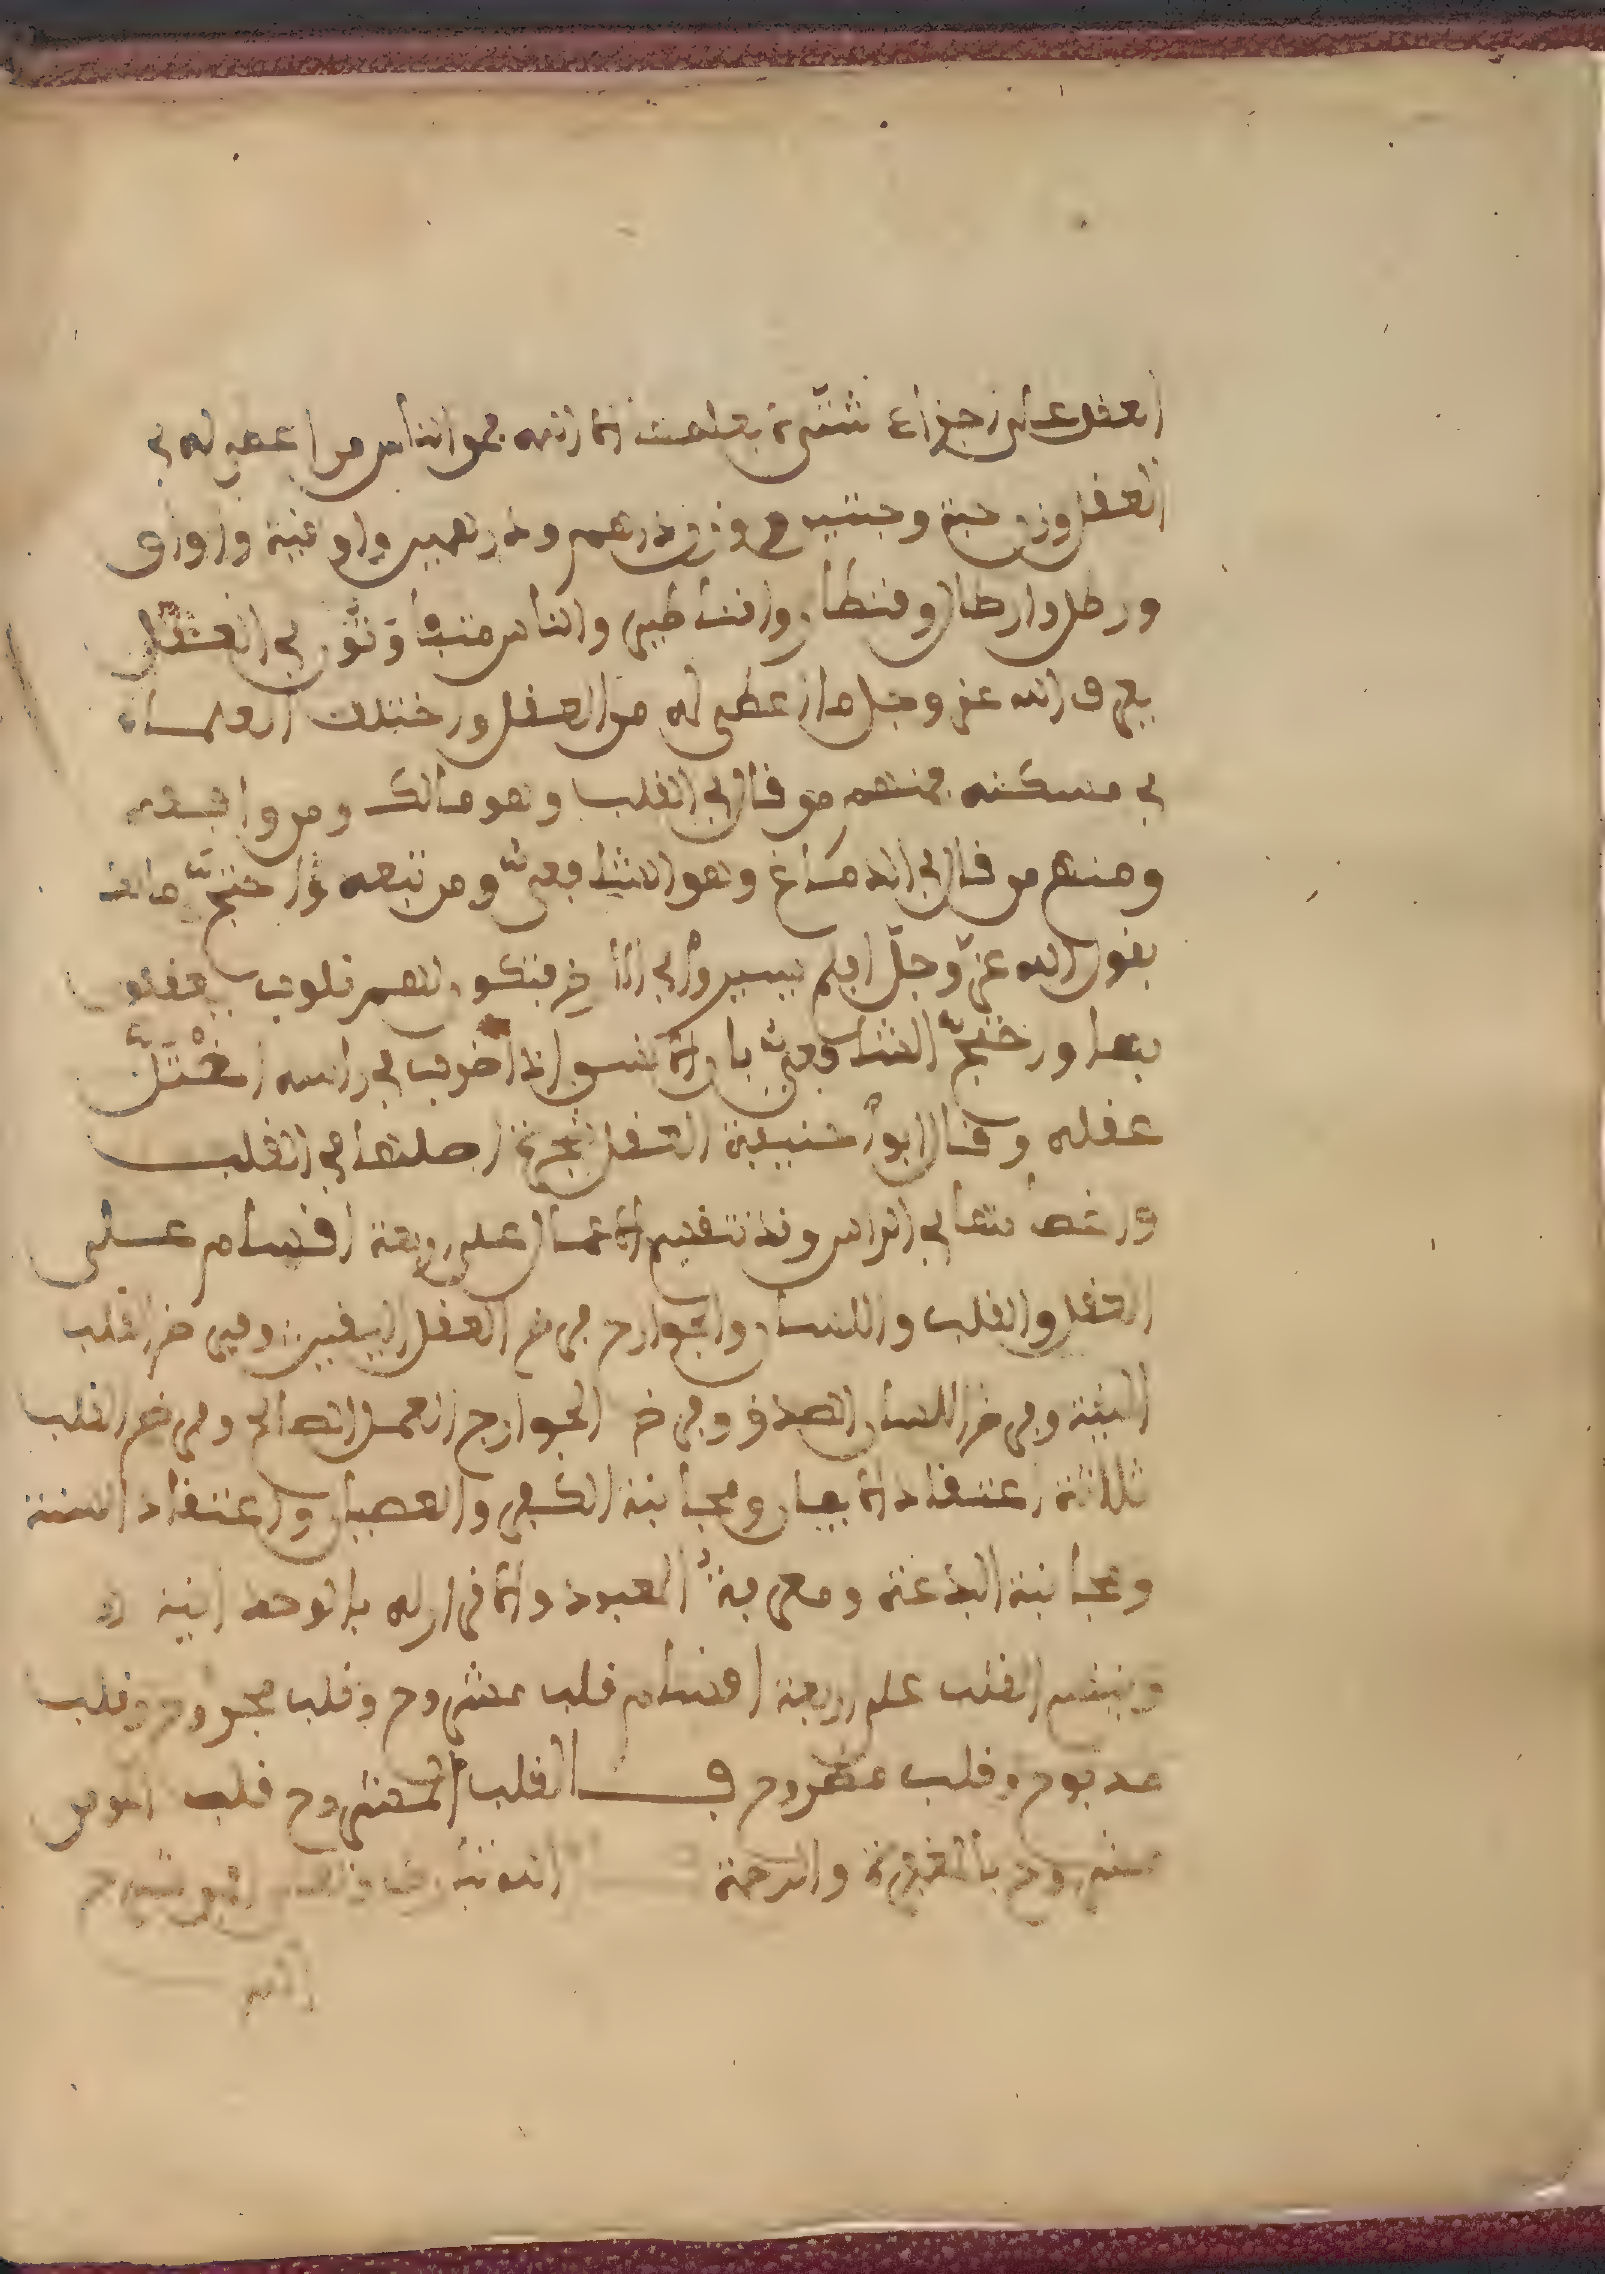 العقل على اجزاء شتى بعلمت ان الله فمن الناس من اعطي له في
العقل وزن حبة وحبتين ووزن درهم ودرهمين واوقية واواق
ورطل وارطال وقنطار واقناطير والناس متفاوتون في العقل
يعرف الله عز وجل ما اعطي له من العقل واختلف العلماء
في مسكنه فمنهم من قال في القلب وهو مالك ومن وافقه
ومنهم من قال في الدماغ وهو الشافعي ومن تبعه واحتج مالك
بقول الله عز وجل افلم يسيروا في الارض فتكون لهم قلوب يعقلون
بها واحتج الشافعي بان الانسان اذا ضرب في راسه اختل
عقله وقال ابو حنيفة العقل شجرة اصلها في القلب
واغصانها في الراس وقد تنقسم الاعمال على اربعة اقسام على
العقل والقلب واللسان والجوارح ففرض العقل اليقين وفرض القلب
النية وفرض اللسان الصدق وفرض الجوارح العمل الصالح وفرض القلب
ثلاثة اعتقاد الايمان ومجانبة الكفر والعصيان واعتقاد السنة
ومجانبة البدعة ومعرفة المعبود والاقرار له بالوحدانية
وينقسم القلب على اربعة اقسام قلب مشروح وقلب مجروح وقلب
مذبوح وقلب مطروح فالقلب المشروح قلب المومن
مشروح بالمغفرة والرحمة الله تبارك وتعالى